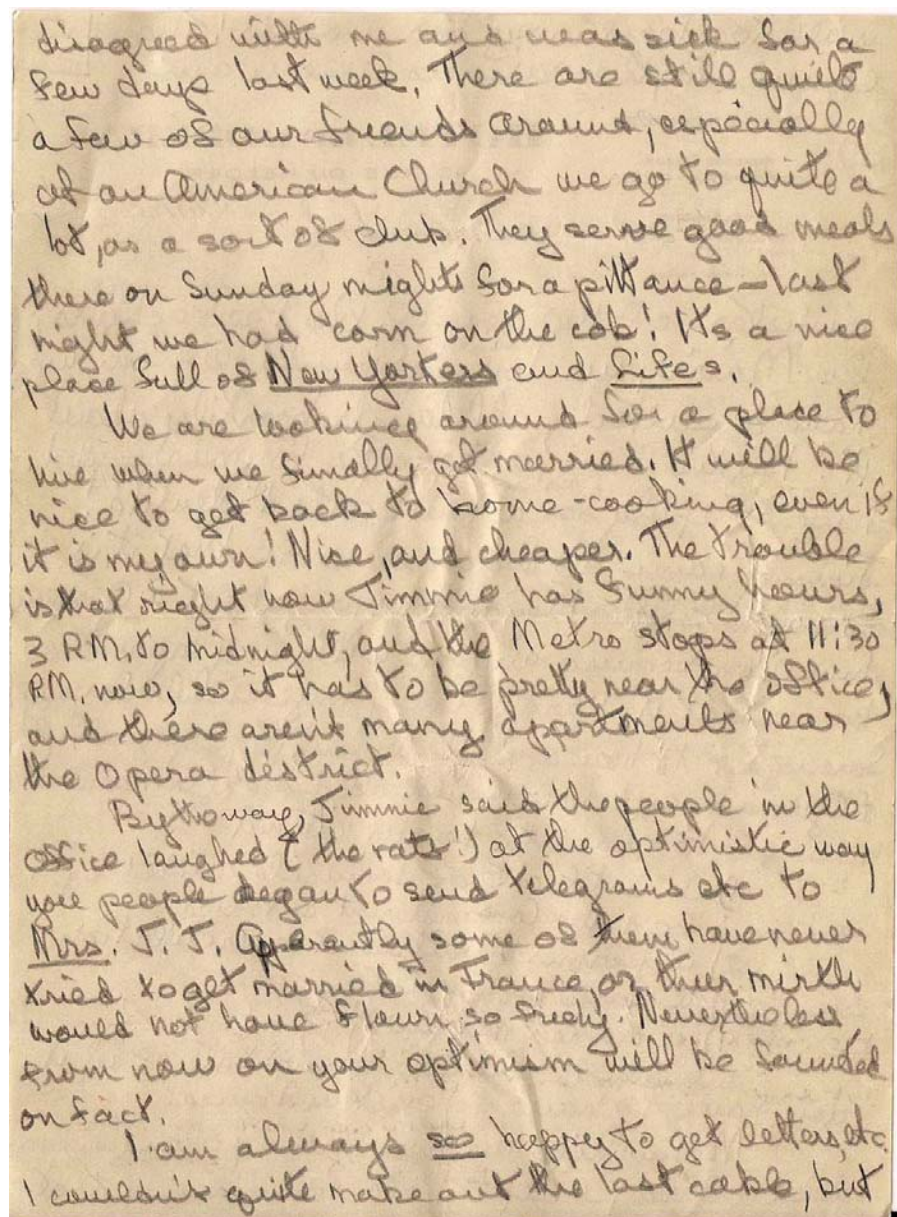 disagreed with me and was sick for a
few days last week. There are still quite
a few of our friends around, especially
at an American Church we go to quite a
lot, as a sort of club. They serve good meals
there on Sunday nights for a pittance - last
night we had corn on the cob! Its a nice
place full of New Yorkers and Lifes.
We are looking around for a place to
live when we finally get married. It will be
nice to get back to home-cooking, even if
it is my own! Nice, and cheaper. The trouble
is that right now Jimmie has funny hours,
3 P.M. to midnight, and the Metro stops at 11:30
P.M. now, so it has to be pretty near the office,
and there aren't many apartments near
the Opera district.
By the way, Jimmie said the people in the
office laughed (the rats!) at the optimistic way
you people began to send telegrams etc to
Mrs. J. J. Apparently some of them have never
tried to get married in France, or their mirth
would not have flown so freely. Nevertheless
from now on your optimism will be founded
on fact.
I am always so happy to get letters, etc.
I couldn't quite make out the last cable, but